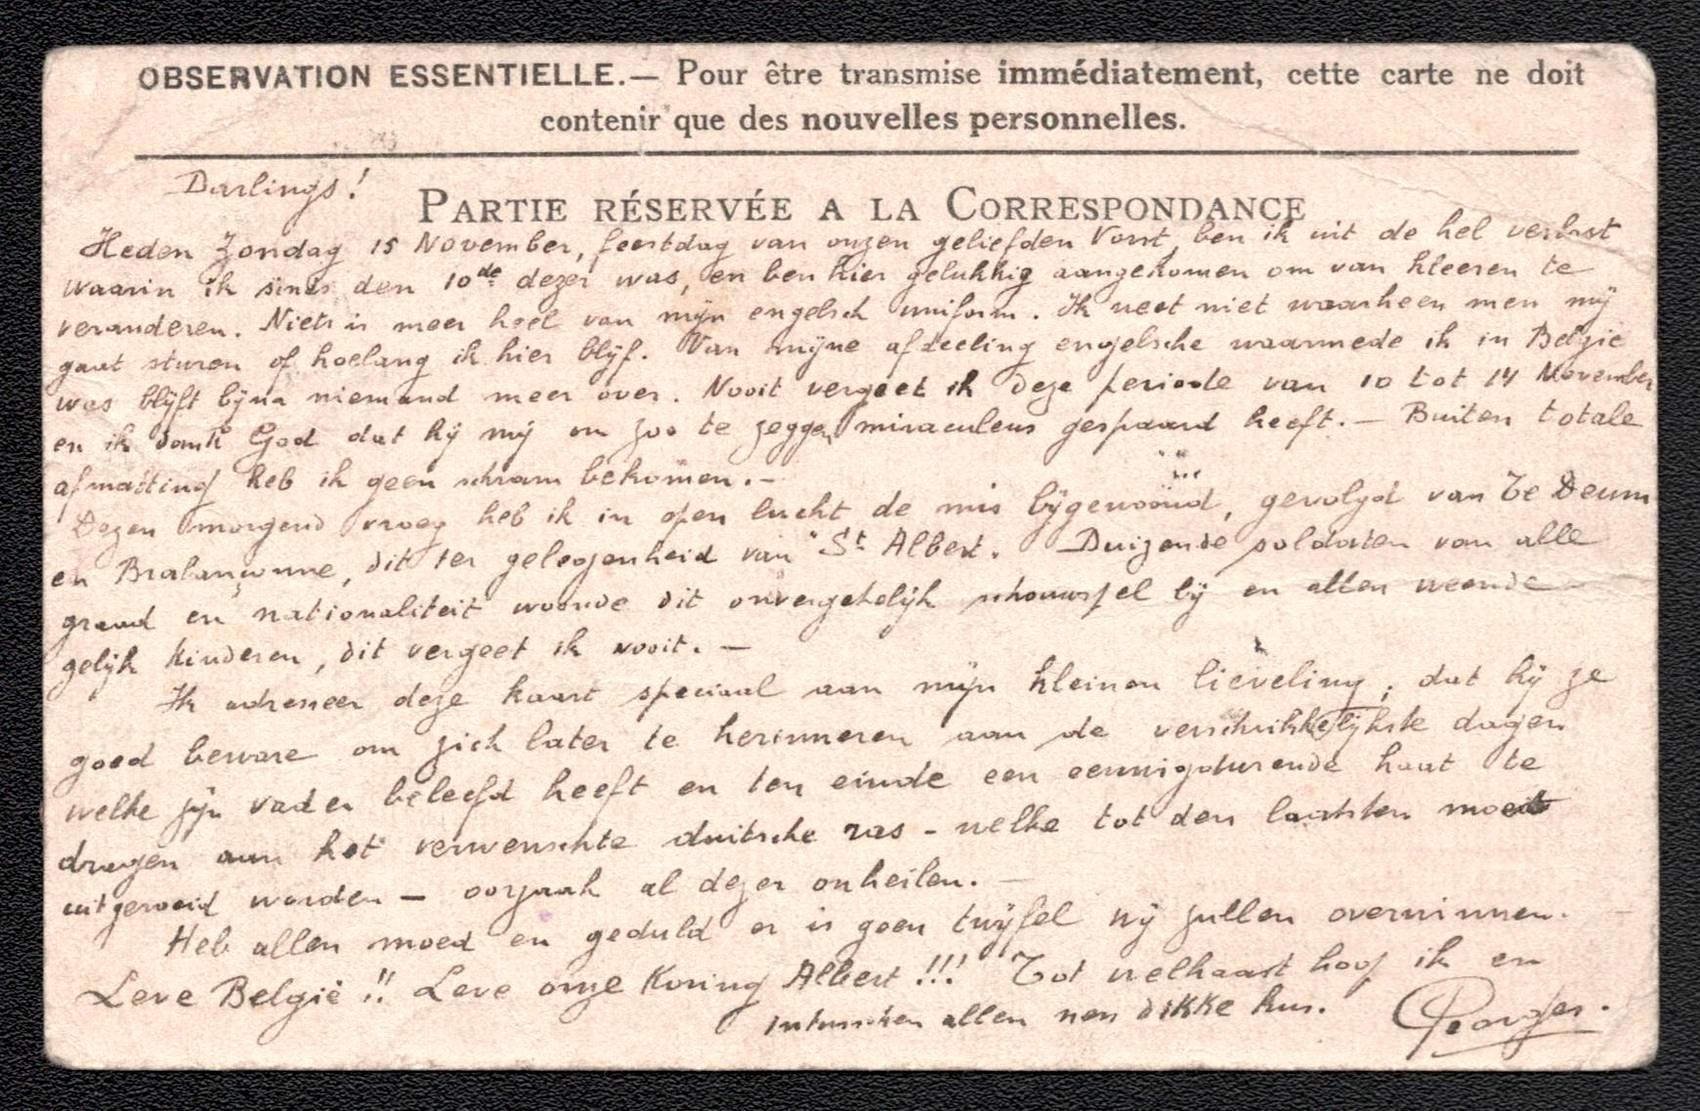 OBSERVATION ESSENTIELLE.— Pour être transmise immédiatement, cette carte ne doit
contenir que des nouvelles personnelles.
Darlings!
PARTIE RÉSERVÉE A LA CORRESPONDANCE
Heden Zondag 15 November, feestdag van onzen geliefden Vorst, ben ik uit de hel verlost
waarin ik sinds den 10de dezer was, en ben hier gelukkig aangekomen om van kleeren te
veranderen. Niets is meer heel van mijn engelsch uniform. Ik weet niet waarheen men mij
gaat sturen of hoelang ik hier blijf. Van mijne afdeeling engelsche waarmede ik in België
was blijft bijna niemand meer over. Nooit vergeet ik deze periode van 10 tot 14 November
en ik dank God dat hij mij om zoo te zeggen miraculeus gespaard heeft.— Buiten totale
afmatting heb ik geen schram bekomen.—
Dezen morgend vroeg heb ik in open lucht de mis bijgewoond, gevolgd van Te Deum
en Brabançonne, dit ter gelegenheid van St Albert. Duizende soldaten van alle
graad en nationaliteit woonde dit onvergetelijk schouwspel bij en allen weende
gelijk kinderen, dit vergeet ik nooit.—
Ik adresseer deze kaart speciaal aan mijn kleinen lieveling, dat hij ze
goed beware om zich later te herinneren aan de verschrikkelijkste dagen
welke zijn vader beleefd heeft en ten einde een eeuwigdurende haat te
dragen aan het verwenschte duitsche ras - welke tot den laatsten moet
uitgeroeid worden — oorzaak al dezer onheilen.—
Heb allen moed en geduld er is geen twijfel wij zullen overwinnen.
Leve België!! Leve onze Koning Albert!!! Tot welhaast hoop ik en
intusschen allen nen dikke kus. Georges.